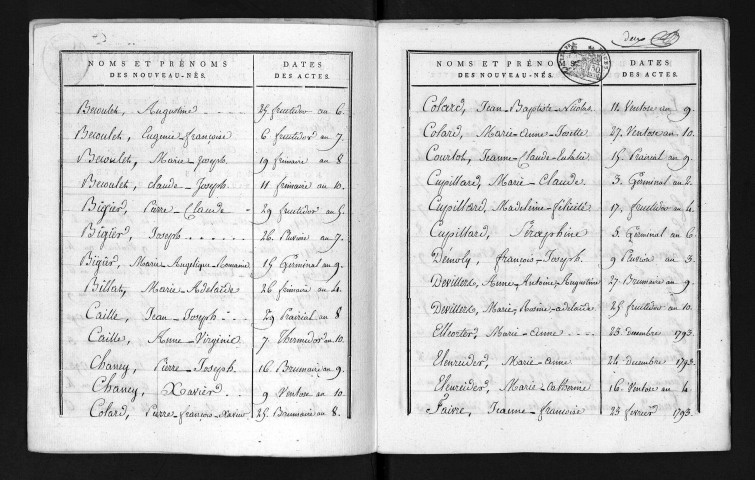 NOMS ET PRÉNOMS DES NOUVEAU-NÉS. DATES DES ACTES.
Beroulet, Augustine 25 fructidor an 6.
Beroulet, Eugenie-françoise 6 fructidor an 7.
Beroulet, Marie-Joseph 19 frimaire an 8
Beroulet, Claude-Joseph 11 frimaire an 10.
Bigier, Pierre-Claude 29 fructidor an 5.
Bigier, Joseph 26. Pluviose an 7.
Bigier, Marie-Angelique-Romaine 15 Germinal an 9.
Billat, Marie-Adelaïde 26 frimaire an 4.
Caille, Jean-Joseph 29 Prairial an 8
Caille, Anne-Virginie 7 Thermidor an 10.
Chaney, Pierre-Joseph 16 Brumaire an 9.
Chaney, Xavier 9 Ventose an 10.
Colard, Pierre-françois-Xavier 25 Brumaire an 8.
deux
NOMS ET PRÉNO DES NOUVEAU-NÉS. DATES DES ACTES.
Colard, Jean-Baptiste-Nicolas 11 Ventose an 9.
Colard, Marie-Anne-Josette 27 Ventose an 10.
Courtot, Jeanne-Claude-Eulalie 15 Prairial an 9.
Cupillard, Marie-Claude 3. Germinal an 2.
Cupillard, Madeleine-félicité 17. fructidor an 4.
Cupillard, Séraphine 5. Germinal an 6.
Démoly, françois-Joseph 9 Pluviose an 3.
Devillers, Anne-Antoine-Augustine 27 Brumaire an 9.
Devillers, Marie-Rosine-adelaïde 25 fructidor an 10.
Marie-Anne 23 decembre 1793.
Eleureider, Marie-Anne 24 decembre 1793.
Eleureider, Marie-Catherine 16 Ventose an 4.
Faivre, Jeanne-françoise 23 fevrier 1793.